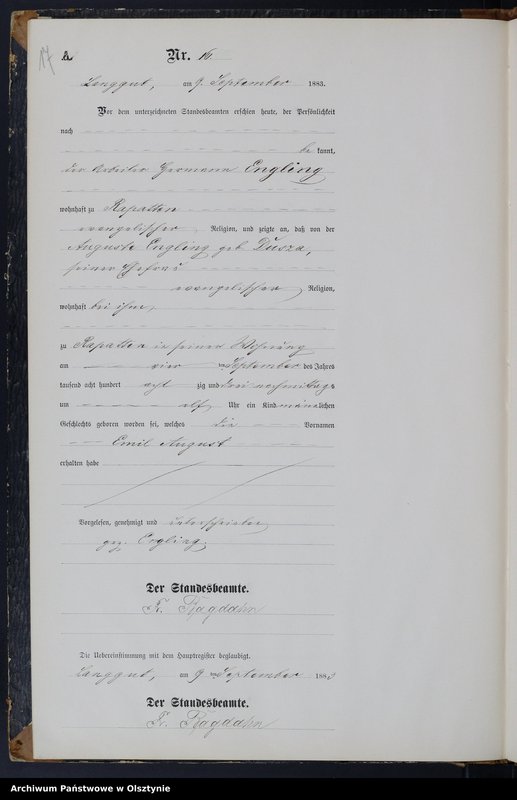 17
A.
Nr. 16.
Langgut, am 9. September 1883.
Vor dem unterzeichneten Standesbeamten erschien heute, der Persönlichkeit
nach
be kannt,
der Arbeiter Hermann Engling
wohnhaft zu Rapatten
evangelischer Religion, und zeigte an, daß von der
Auguste Engling geb. Dusza,
seiner Ehefrau
evangelischer Religion,
wohnhaft bei ihm,
zu Rapatten in seiner Wohnung
am vier ten September des Jahres
tausend acht hundert acht zig und drei nachmittags
um elf Uhr ein Kind männlichen
Geschlechts geboren worden sei, welches die Vornamen
Emil August
erhalten habe
Vorgelesen, genehmigt und unterschrieben
gez. Engling.
Der Standesbeamte.
Fr. Ragdahn
Die Uebereinstimmung mit dem Hauptregister beglaubigt.
Langgut, am 9 ten September 1883
Der Standesbeamte.
Fr. Ragdahn
Archiwum Państwowe w Olsztynie